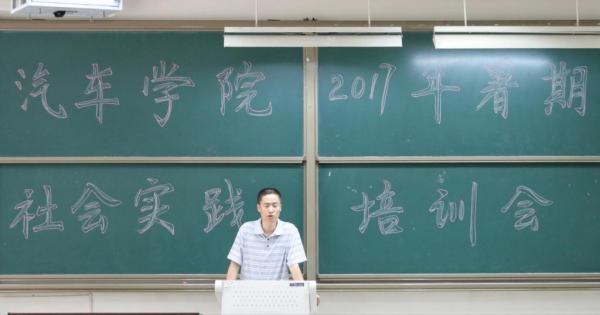 汽车学院 2017年暑期
社会实践 培训会